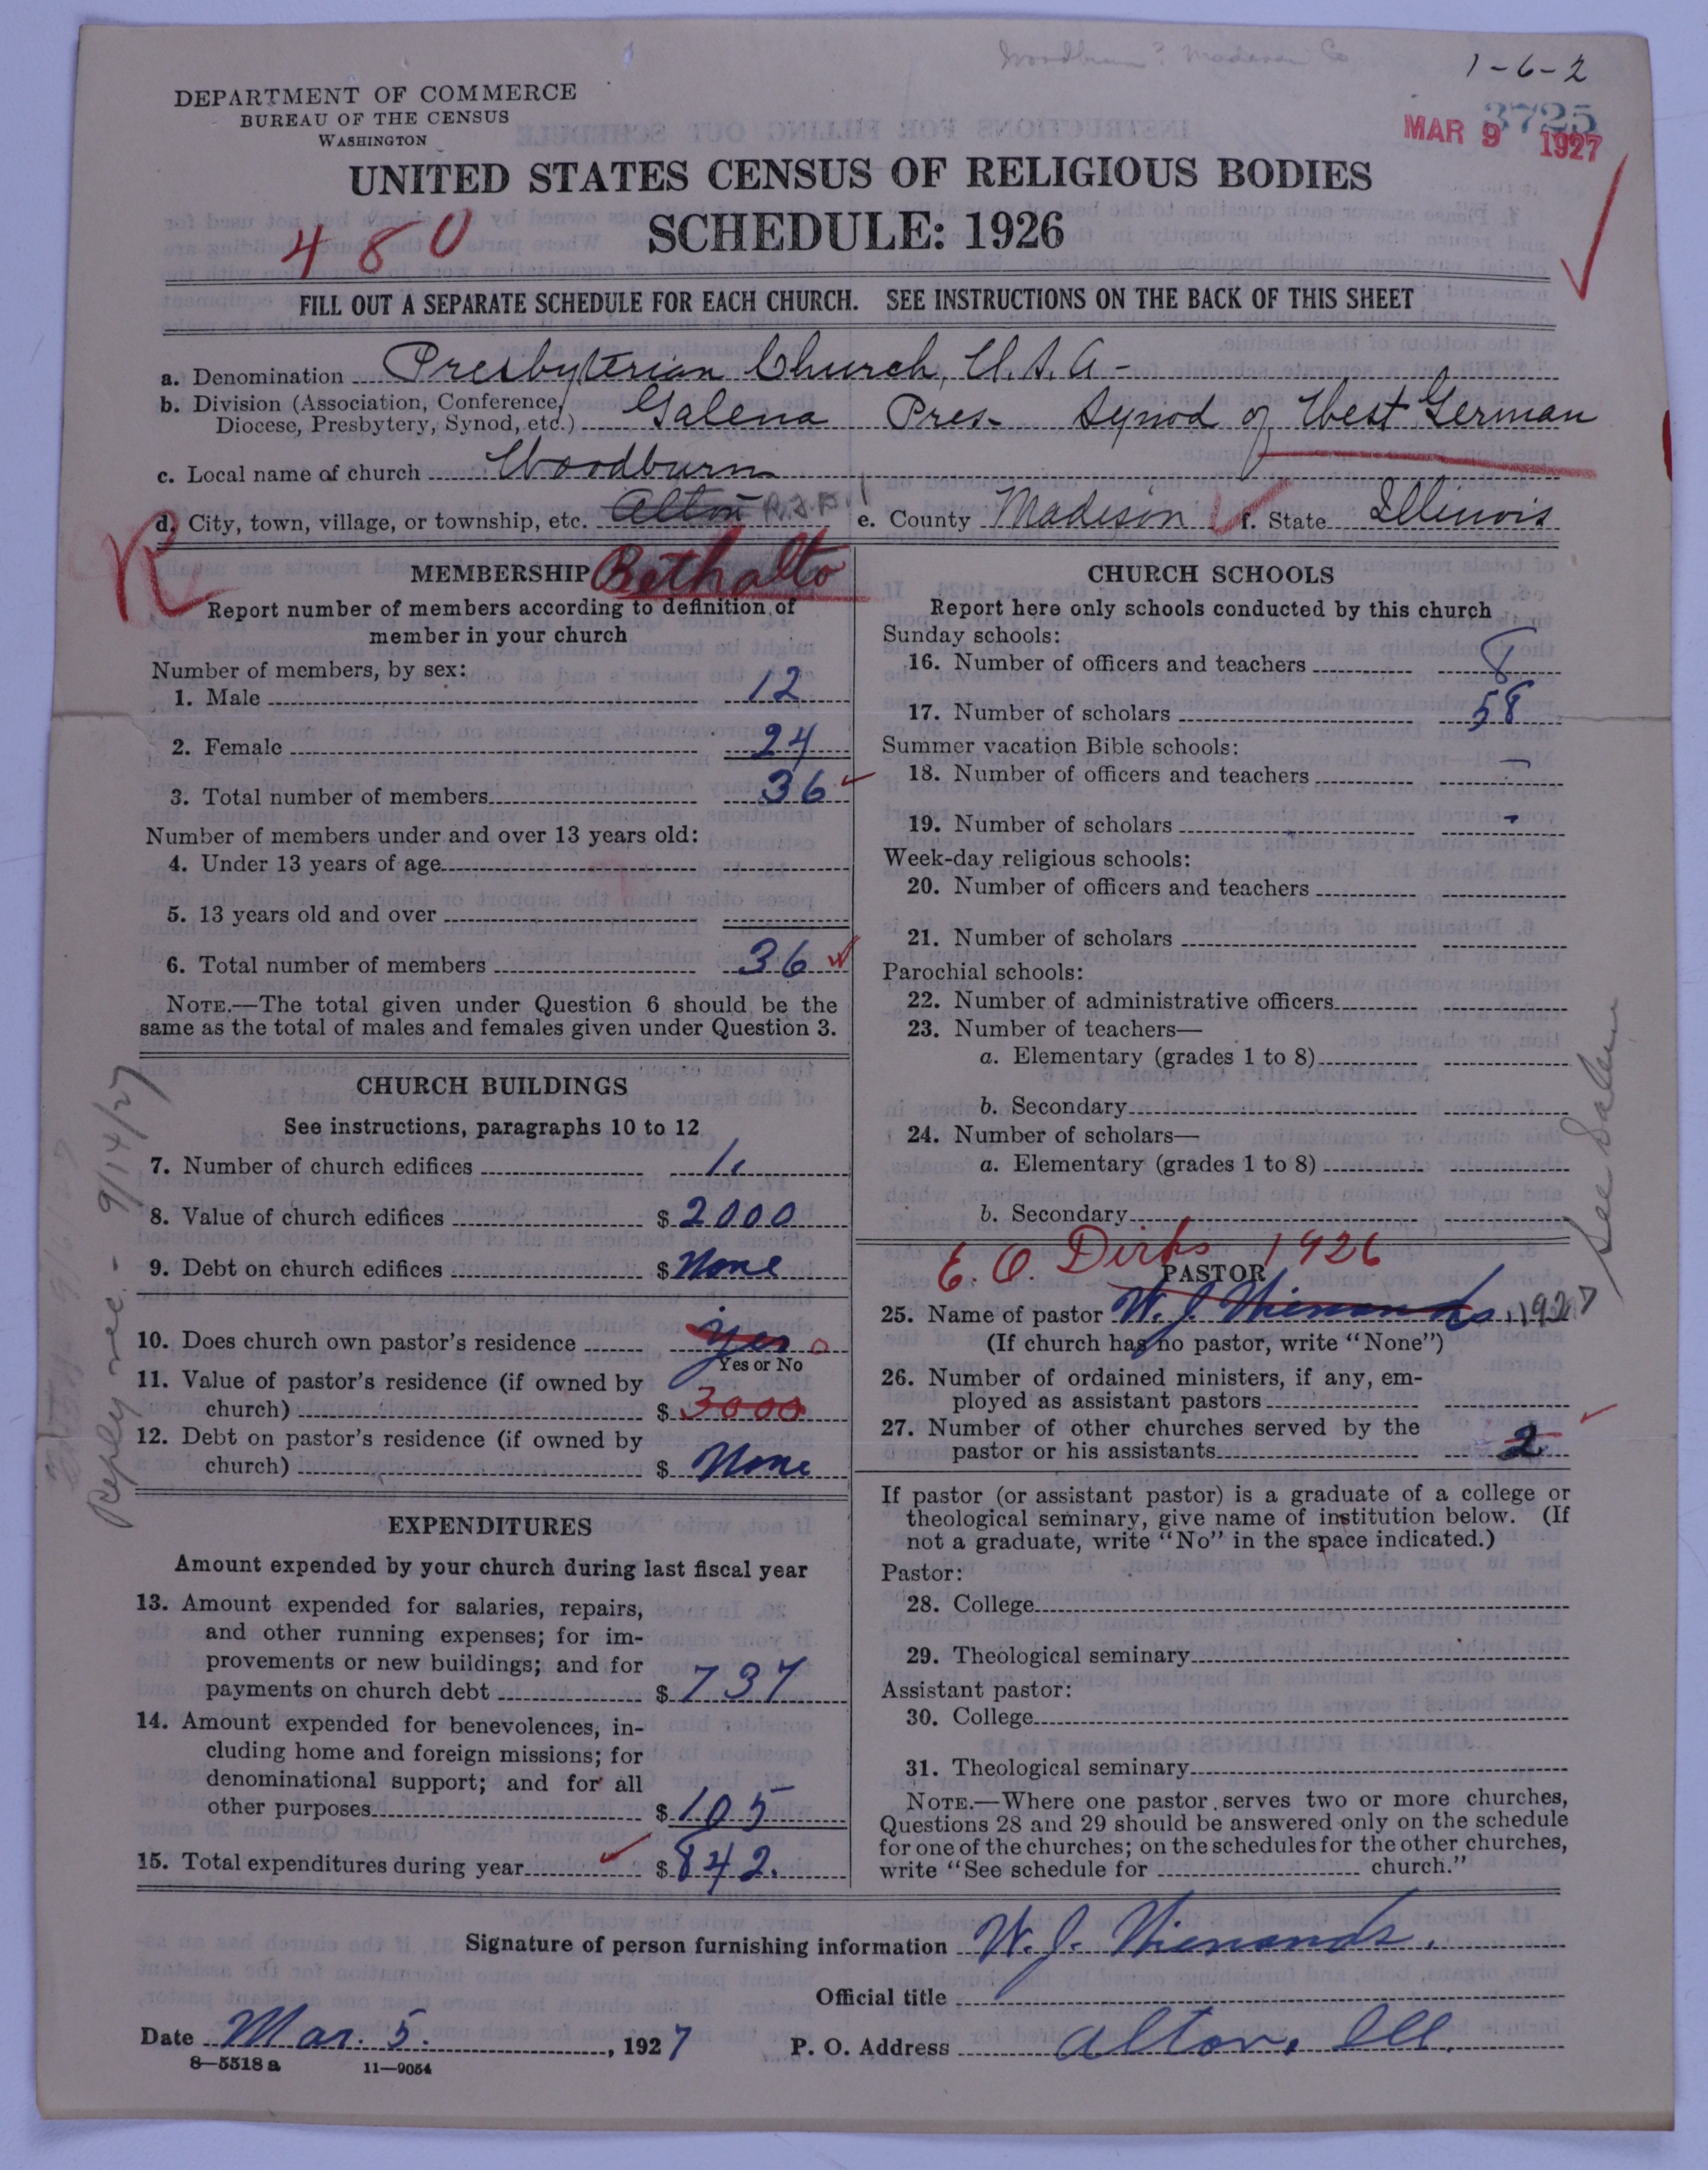 Woodburn? Madison Co
1-6-2
3725
MAR 9 1927
DEPARTMENT OF COMMERCE
BUREAU OF THE CENSUS
WASHINGTON
UNITED STATES CENSUS OF RELIGIOUS BODIES
SCHEDULE: 1926
480
FILL OUT A SEPARATE SCHEDULE FOR EACH CHURCH. SEE INSTRUCTIONS ON THE BACK OF THIS SHEET
a. Denomination Presbyterian Church, U.S.A-
b. Division (Association, Conference, Diocese, Presbytery, Synod, etc.) Galena Pres- Synod of West German
c. Local name of church Woodburn
d. City, town, village, or township, etc. Alton e. County Madison f. State Illinois
R
Bethalto
MEMBERSHIP
Report number of members according to definition of
member in your church
Number of members, by sex:
1. Male 12
2. Female 24
3. Total number of members 36
Number of members under and over 13 years old:
4. Under 13 years of age
5. 13 years old and over
6. Total number of members 36
NOTE.—The total given under Question 6 should be the
same as the total of males and females given under Question 3.
CHURCH BUILDINGS
See instructions, paragraphs 10 to 12
7. Number of church edifices 1
8. Value of church edifices $2000
9. Debt on church edifices $None
10. Does church own pastor's residence yes
Yes or No
11. Value of pastor's residence (if owned by
church) $3000
12. Debt on pastor's residence (if owned by
church) $None
EXPENDITURES
Amount expended by your church during last fiscal year
13. Amount expended for salaries, repairs,
and other running expenses; for im-
provements or new buildings; and for
payments on church debt $737
14. Amount expended for benevolences, in-
cluding home and foreign missions; for
denominational support; and for all
other purposes $105
15. Total expenditures during year $842.
Reply rec. - 9/14/27
CHURCH SCHOOLS
Report here only schools conducted by this church
Sunday schools:
16. Number of officers and teachers 8
17. Number of scholars 58
Summer vacation Bible schools:
18. Number of officers and teachers -
19. Number of scholars -
Week-day religious schools:
20. Number of officers and teachers
21. Number of scholars
Parochial schools:
22. Number of administrative officers
23. Number of teachers—
a. Elementary (grades 1 to 8)
b. Secondary
24. Number of scholars—
a. Elementary (grades 1 to 8)
b. Secondary
See Salem
E. O. Dirks 1926
PASTOR
25. Name of pastor W. J. Wienands, 1927
(If church has no pastor, write "None")
26. Number of ordained ministers, if any, em-
ployed as assistant pastors
27. Number of other churches served by the
pastor or his assistants 2
If pastor (or assistant pastor) is a graduate of a college or
theological seminary, give name of institution below. (If
not a graduate, write "No" in the space indicated.)
Pastor:
28. College
29. Theological seminary
Assistant pastor:
30. College
31. Theological seminary
NOTE.—Where one pastor serves two or more churches,
Questions 28 and 29 should be answered only on the schedule
for one of the churches; on the schedules for the other churches,
write "See schedule for church."
Signature of person furnishing information W. J. Wienands.
Official title
Date Mar. 5., 1927 P. O. Address Alton, Ill.
8—5518a 11—9054